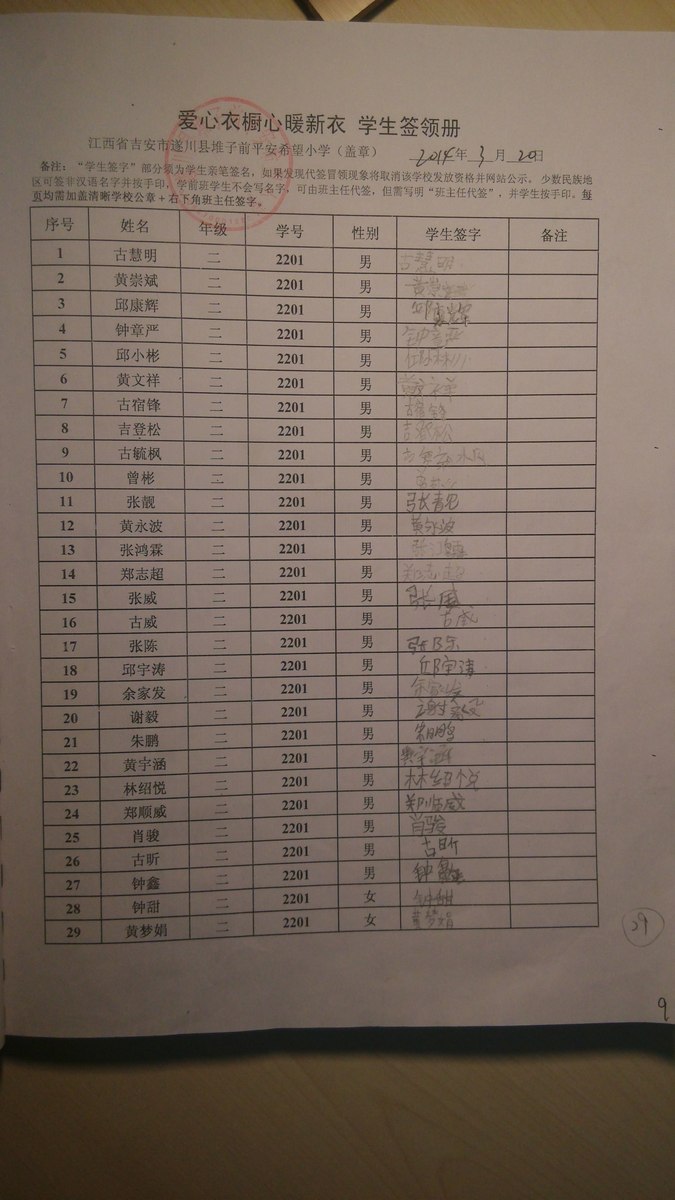 爱心衣橱心暖新衣 学生签领册
江西省吉安市遂川县堆子前平安希望小学（盖章） 2014年 3 月 20日
备注：“学生签字”部分须为学生亲笔签名，如果发现代签冒领现象将取消该学校发放资格并网站公示。少数民族地
区可签非汉语名字并按手印，学前班学生不会写名字，可由班主任代签，但需写明“班主任代签”，并学生按手印。每
页均需加盖清晰学校公章+右下角班主任签字。
序号 姓名 年级 学号 性别 学生签字 备注
1 古慧明 二 2201 男 古慧明
2 黄崇斌 二 2201 男 黄崇斌
3 邱康辉 二 2201 男 邱康辉
4 钟章严 二 2201 男 钟章严
5 邱小彬 二 2201 男
6 黄文祥 二 2201 男
7 古宿锋 二 2201 男 古宿锋
8 吉登松 二 2201 男 吉登松
9 古毓枫 二 2201 男
10 曾彬 二 2201 男
11 张靓 二 2201 男 张靓
12 黄永波 二 2201 男 黄永波
13 张鸿霖 二 2201 男 张鸿霖
14 郑志超 二 2201 男 郑志超
15 张威 二 2201 男 张威
16 古威 二 2201 男 古威
17 张陈 二 2201 男 张陈
18 邱宇涛 二 2201 男 邱宇涛
19 余家发 二 2201 男 余家发
20 谢毅 二 2201 男 谢毅
21 朱鹏 二 2201 男 朱鹏
22 黄宇涵 二 2201 男 黄宇涵
23 林绍悦 二 2201 男 林绍悦
24 郑顺威 二 2201 男 郑顺威
25 肖骏 二 2201 男 肖骏
26 古昕 二 2201 男 古昕
27 钟鑫 二 2201 男 钟鑫
28 钟甜 二 2201 女 钟甜
29 黄梦娟 二 2201 女 黄梦娟
29
9